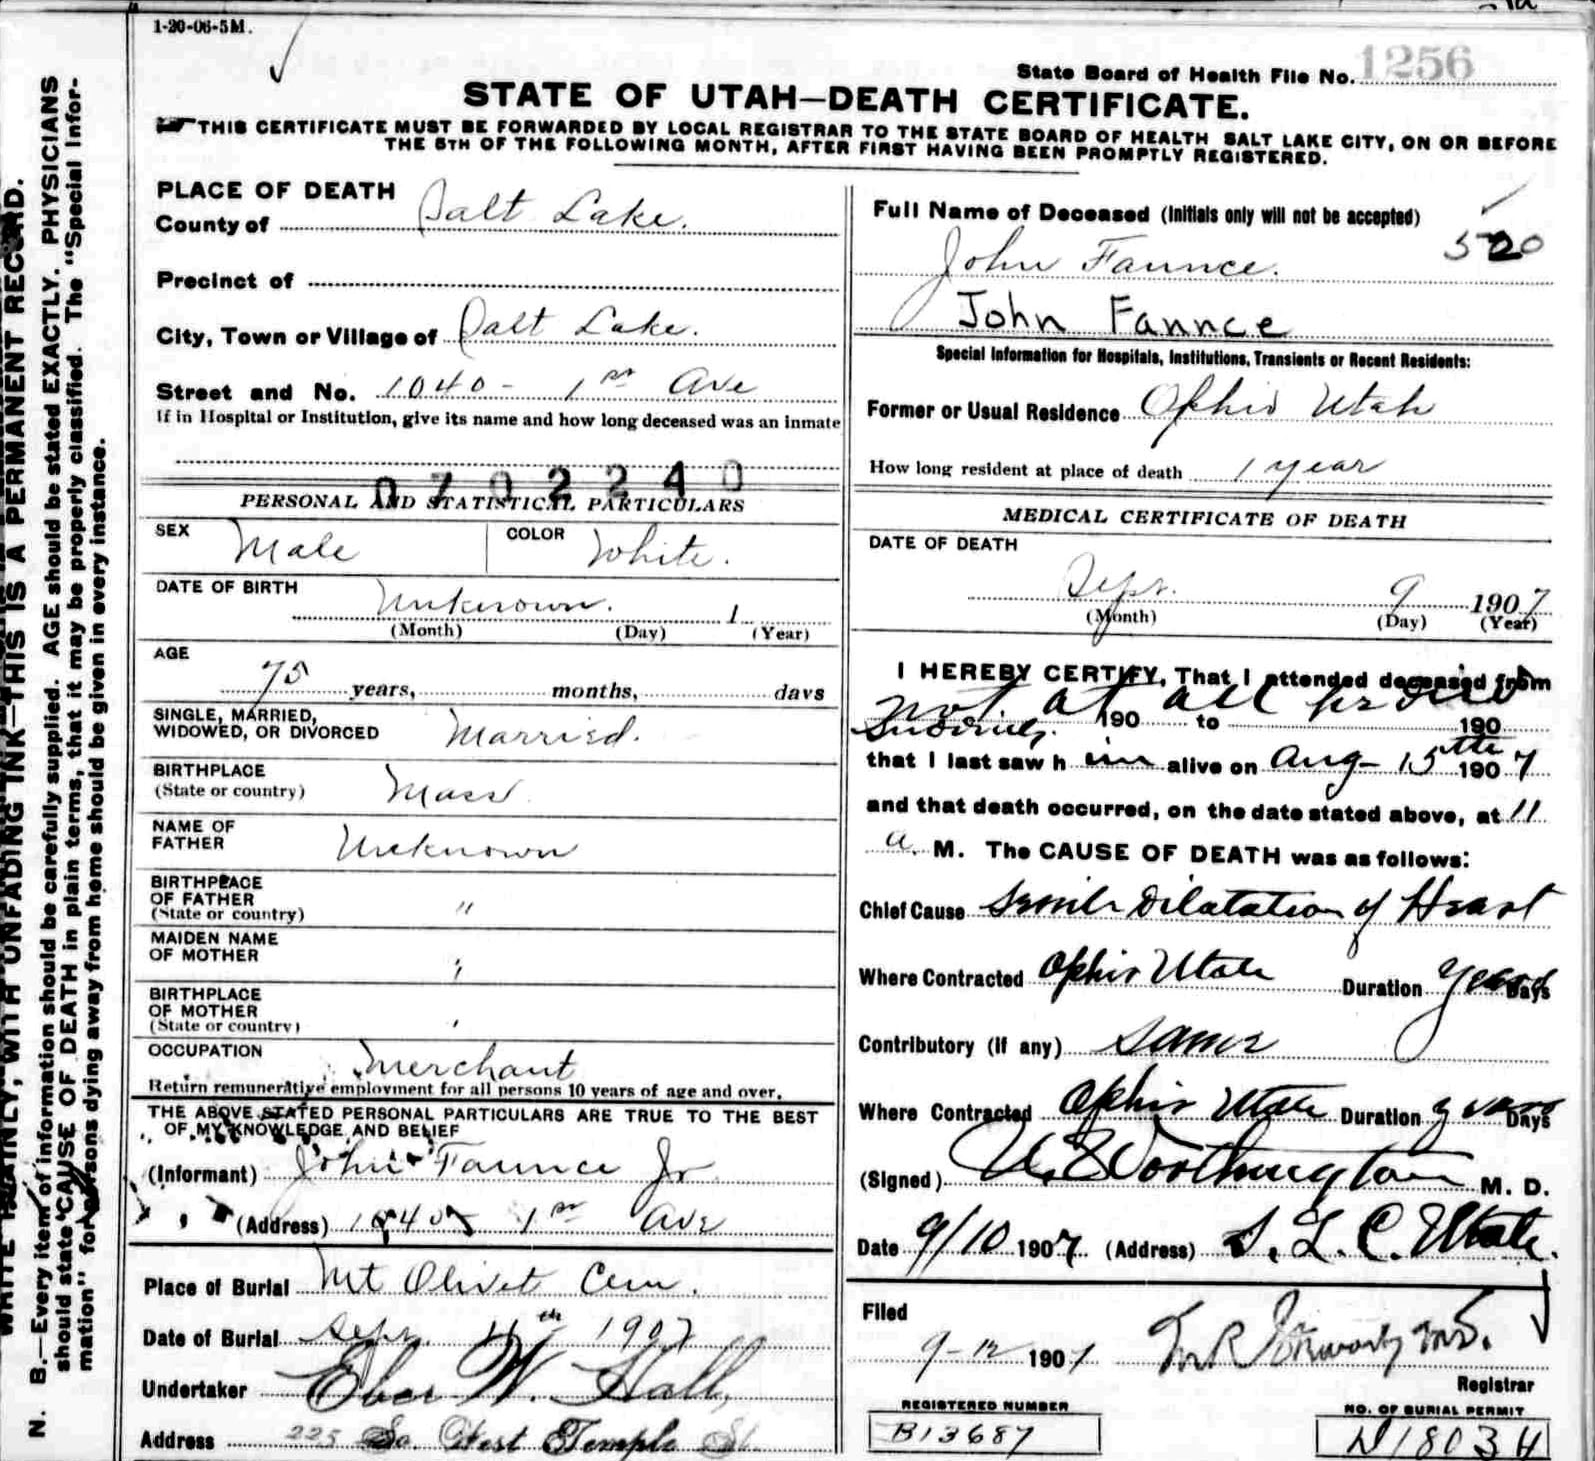 1-20-06-5M.
State Board of Health File No. 1256
STATE OF UTAH—DEATH CERTIFICATE.
THIS CERTIFICATE MUST BE FORWARDED BY LOCAL REGISTRAR TO THE STATE BOARD OF HEALTH SALT LAKE CITY, ON OR BEFORE
THE 5TH OF THE FOLLOWING MONTH, AFTER FIRST HAVING BEEN PROMPTLY REGISTERED.
WRITE PLAINLY, WITH UNFADING INK—THIS IS A PERMANENT RECORD.
N. B.—Every item of information should be carefully supplied. AGE should be stated EXACTLY. PHYSICIANS
should state CAUSE OF DEATH in plain terms, that it may be properly classified. The "Special Infor-
mation" for persons dying away from home should be given in every instance.
PLACE OF DEATH
County of Salt Lake.
Precinct of
City, Town or Village of Salt Lake.
Street and No. 1040 - 1st Ave
If in Hospital or Institution, give its name and how long deceased was an inmate
0702240
PERSONAL AND STATISTICAL PARTICULARS
SEX Male COLOR White.
DATE OF BIRTH Unknown. 1
(Month) (Day) (Year)
AGE
75 years, months, days
SINGLE, MARRIED,
WIDOWED, OR DIVORCED Married.
BIRTHPLACE
(State or country) Mass
NAME OF
FATHER Unknown
BIRTHPLACE
OF FATHER
(State or country) "
MAIDEN NAME
OF MOTHER "
BIRTHPLACE
OF MOTHER
(State or country) '
OCCUPATION Merchant
Return remunerative employment for all persons 10 years of age and over.
THE ABOVE STATED PERSONAL PARTICULARS ARE TRUE TO THE BEST
OF MY KNOWLEDGE AND BELIEF
(Informant) John Faunce Jr
(Address) 1040 1st Ave
Place of Burial Mt Olivet Cem.
Date of Burial Sept. 11th 1907
Undertaker Eber W. Hall,
Address 225 So West Temple St.
Full Name of Deceased (Initials only will not be accepted)
520
John Faunce.
John Fannce
Special Information for Hospitals, Institutions, Transients or Recent Residents:
Former or Usual Residence Ophir Utah
How long resident at place of death 1 year
MEDICAL CERTIFICATE OF DEATH
DATE OF DEATH
Sept. 9 1907
(Month) (Day) (Year)
I HEREBY CERTIFY, That I attended deceased from
not at all 190 to 190
that I last saw him alive on Aug - 15th 1907
and that death occurred, on the date stated above, at 11
a. M. The CAUSE OF DEATH was as follows:
Chief Cause Senile Dilatation of Heart
Where Contracted Ophir Utah Duration years Days
Contributory (if any) Same
Where Contracted Ophir Utah Duration years Days
(Signed) Worthington M. D.
Date 9/10 1907. (Address) S. L. C. Utah.
Filed
9-12 1907
Registrar
REGISTERED NUMBER
B13687
NO. OF BURIAL PERMIT